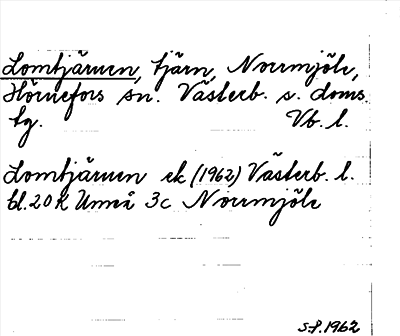 Lomtjärnen, tjärn, Norrmjöle,
Hörnefors sn. Västerb. s. doms.
tg. Vb. l.
Lomtjärnen ek (1962) Västerb. l.
bl. 20 K Umeå 3c Norrmjöle
S-f. 1962